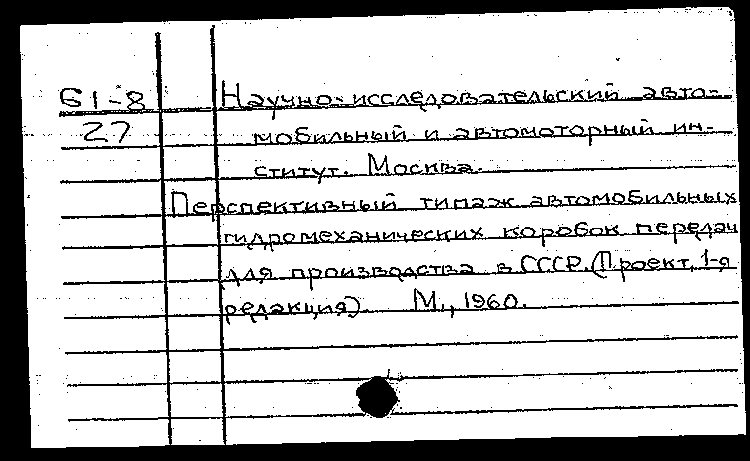 61-8
27
Научно-исследовательский авто-
мобильный и автомоторный ин-
ститут. Москва.
Перспективный типаж автомобильных
гидромеханических коробок передач
для производства в СССР. (Проект, 1-я
редакция). М., 1960.